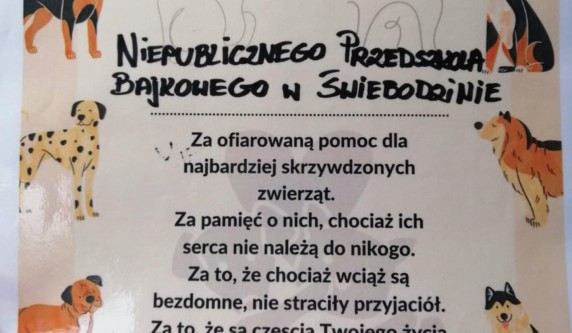 NIEPUBLICZNEGO PRZEDSZKOLA
BAJKOWEGO W ŚWIEBODZINIE
Za ofiarowaną pomoc dla
najbardziej skrzywdzonych
zwierząt.
Za pamięć o nich, chociaż ich
serca nie należą do nikogo.
Za to, że chociaż wciąż są
bezdomne, nie straciły przyjaciół.
Za to, że są częścią Twojego życia